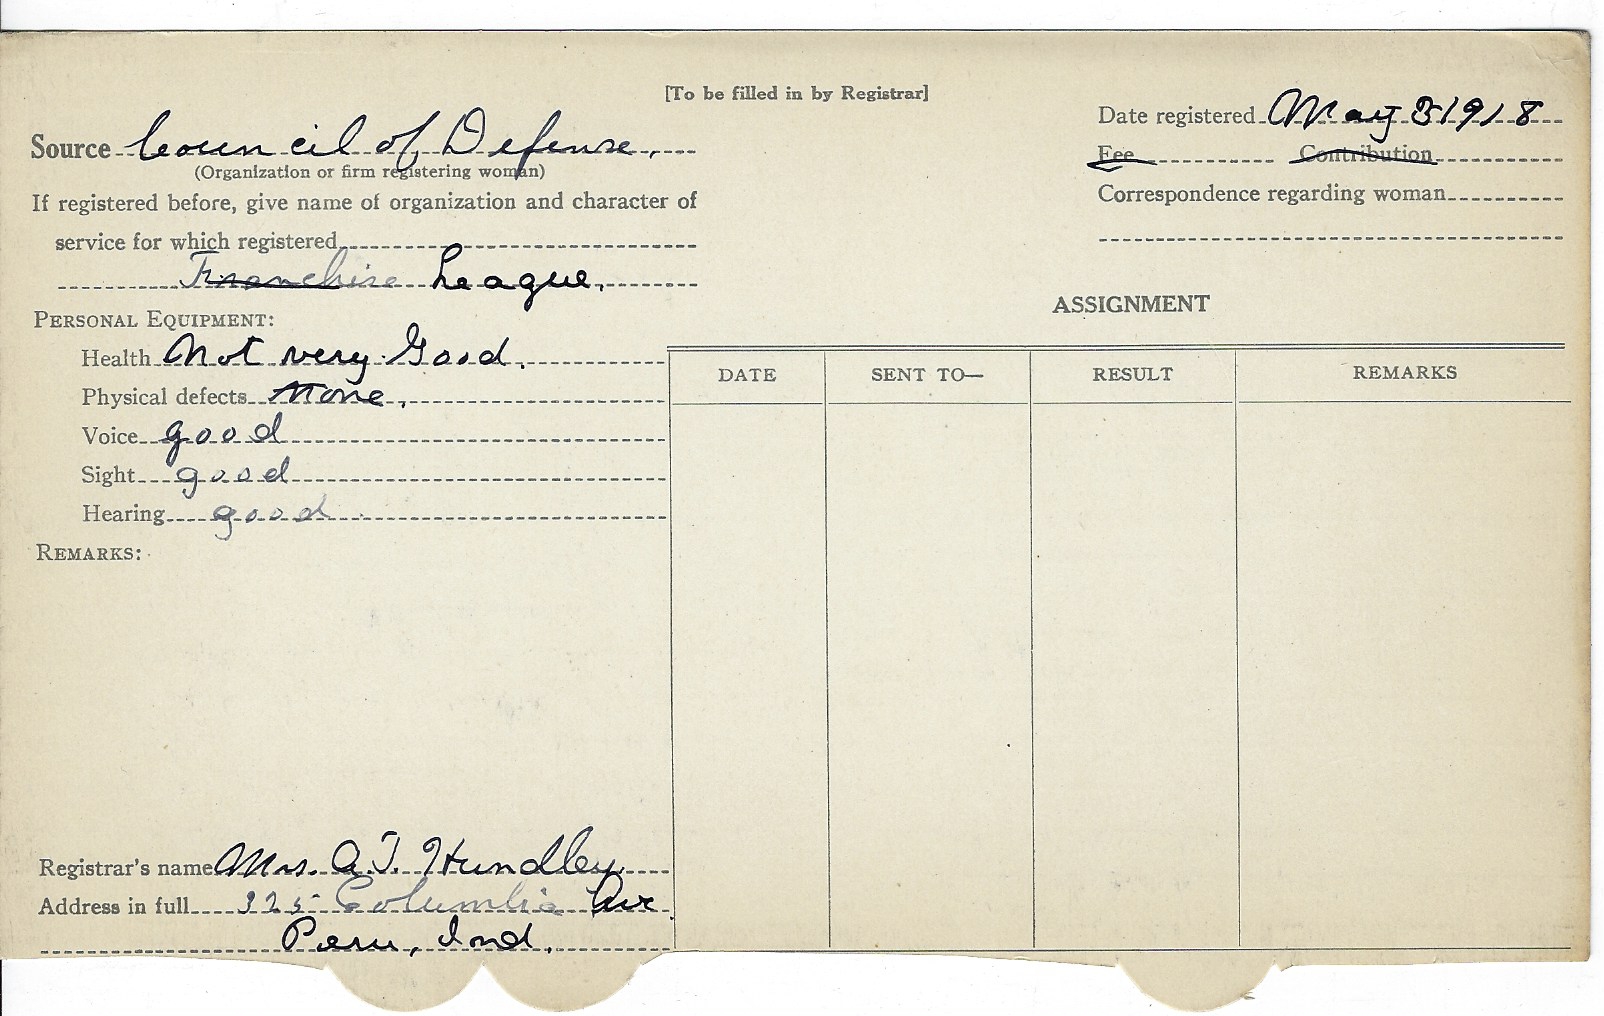 [To be filled in by Registrar]
Source Council of Defense.
(Organization or firm registering woman)
If registered before, give name of organization and character of
service for which registered
Franchise League.
PERSONAL EQUIPMENT:
Health Not very Good.
Physical defects None.
Voice good
Sight good
Hearing good
REMARKS:
Registrar's name Mrs. A.T. Hundley
Address in full 325 Columbia Ave.
Peru, Ind.
Date registered May 3 1918
Fee Contribution
Correspondence regarding woman
ASSIGNMENT
DATE SENT TO— RESULT REMARKS